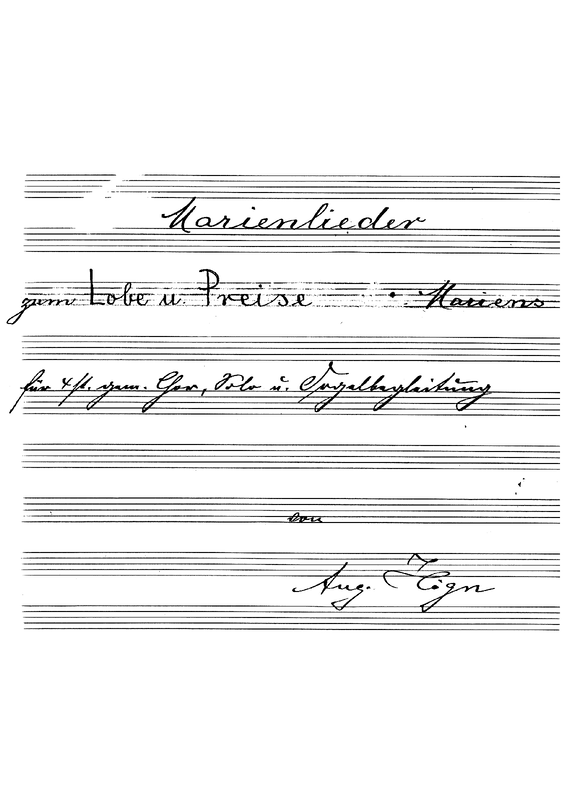 Marienlieder
zum Lobe u. Preise Mariens
für 4 st. gem. Chor, Solo u. Orgelbegleitung
von
Aug. Högn